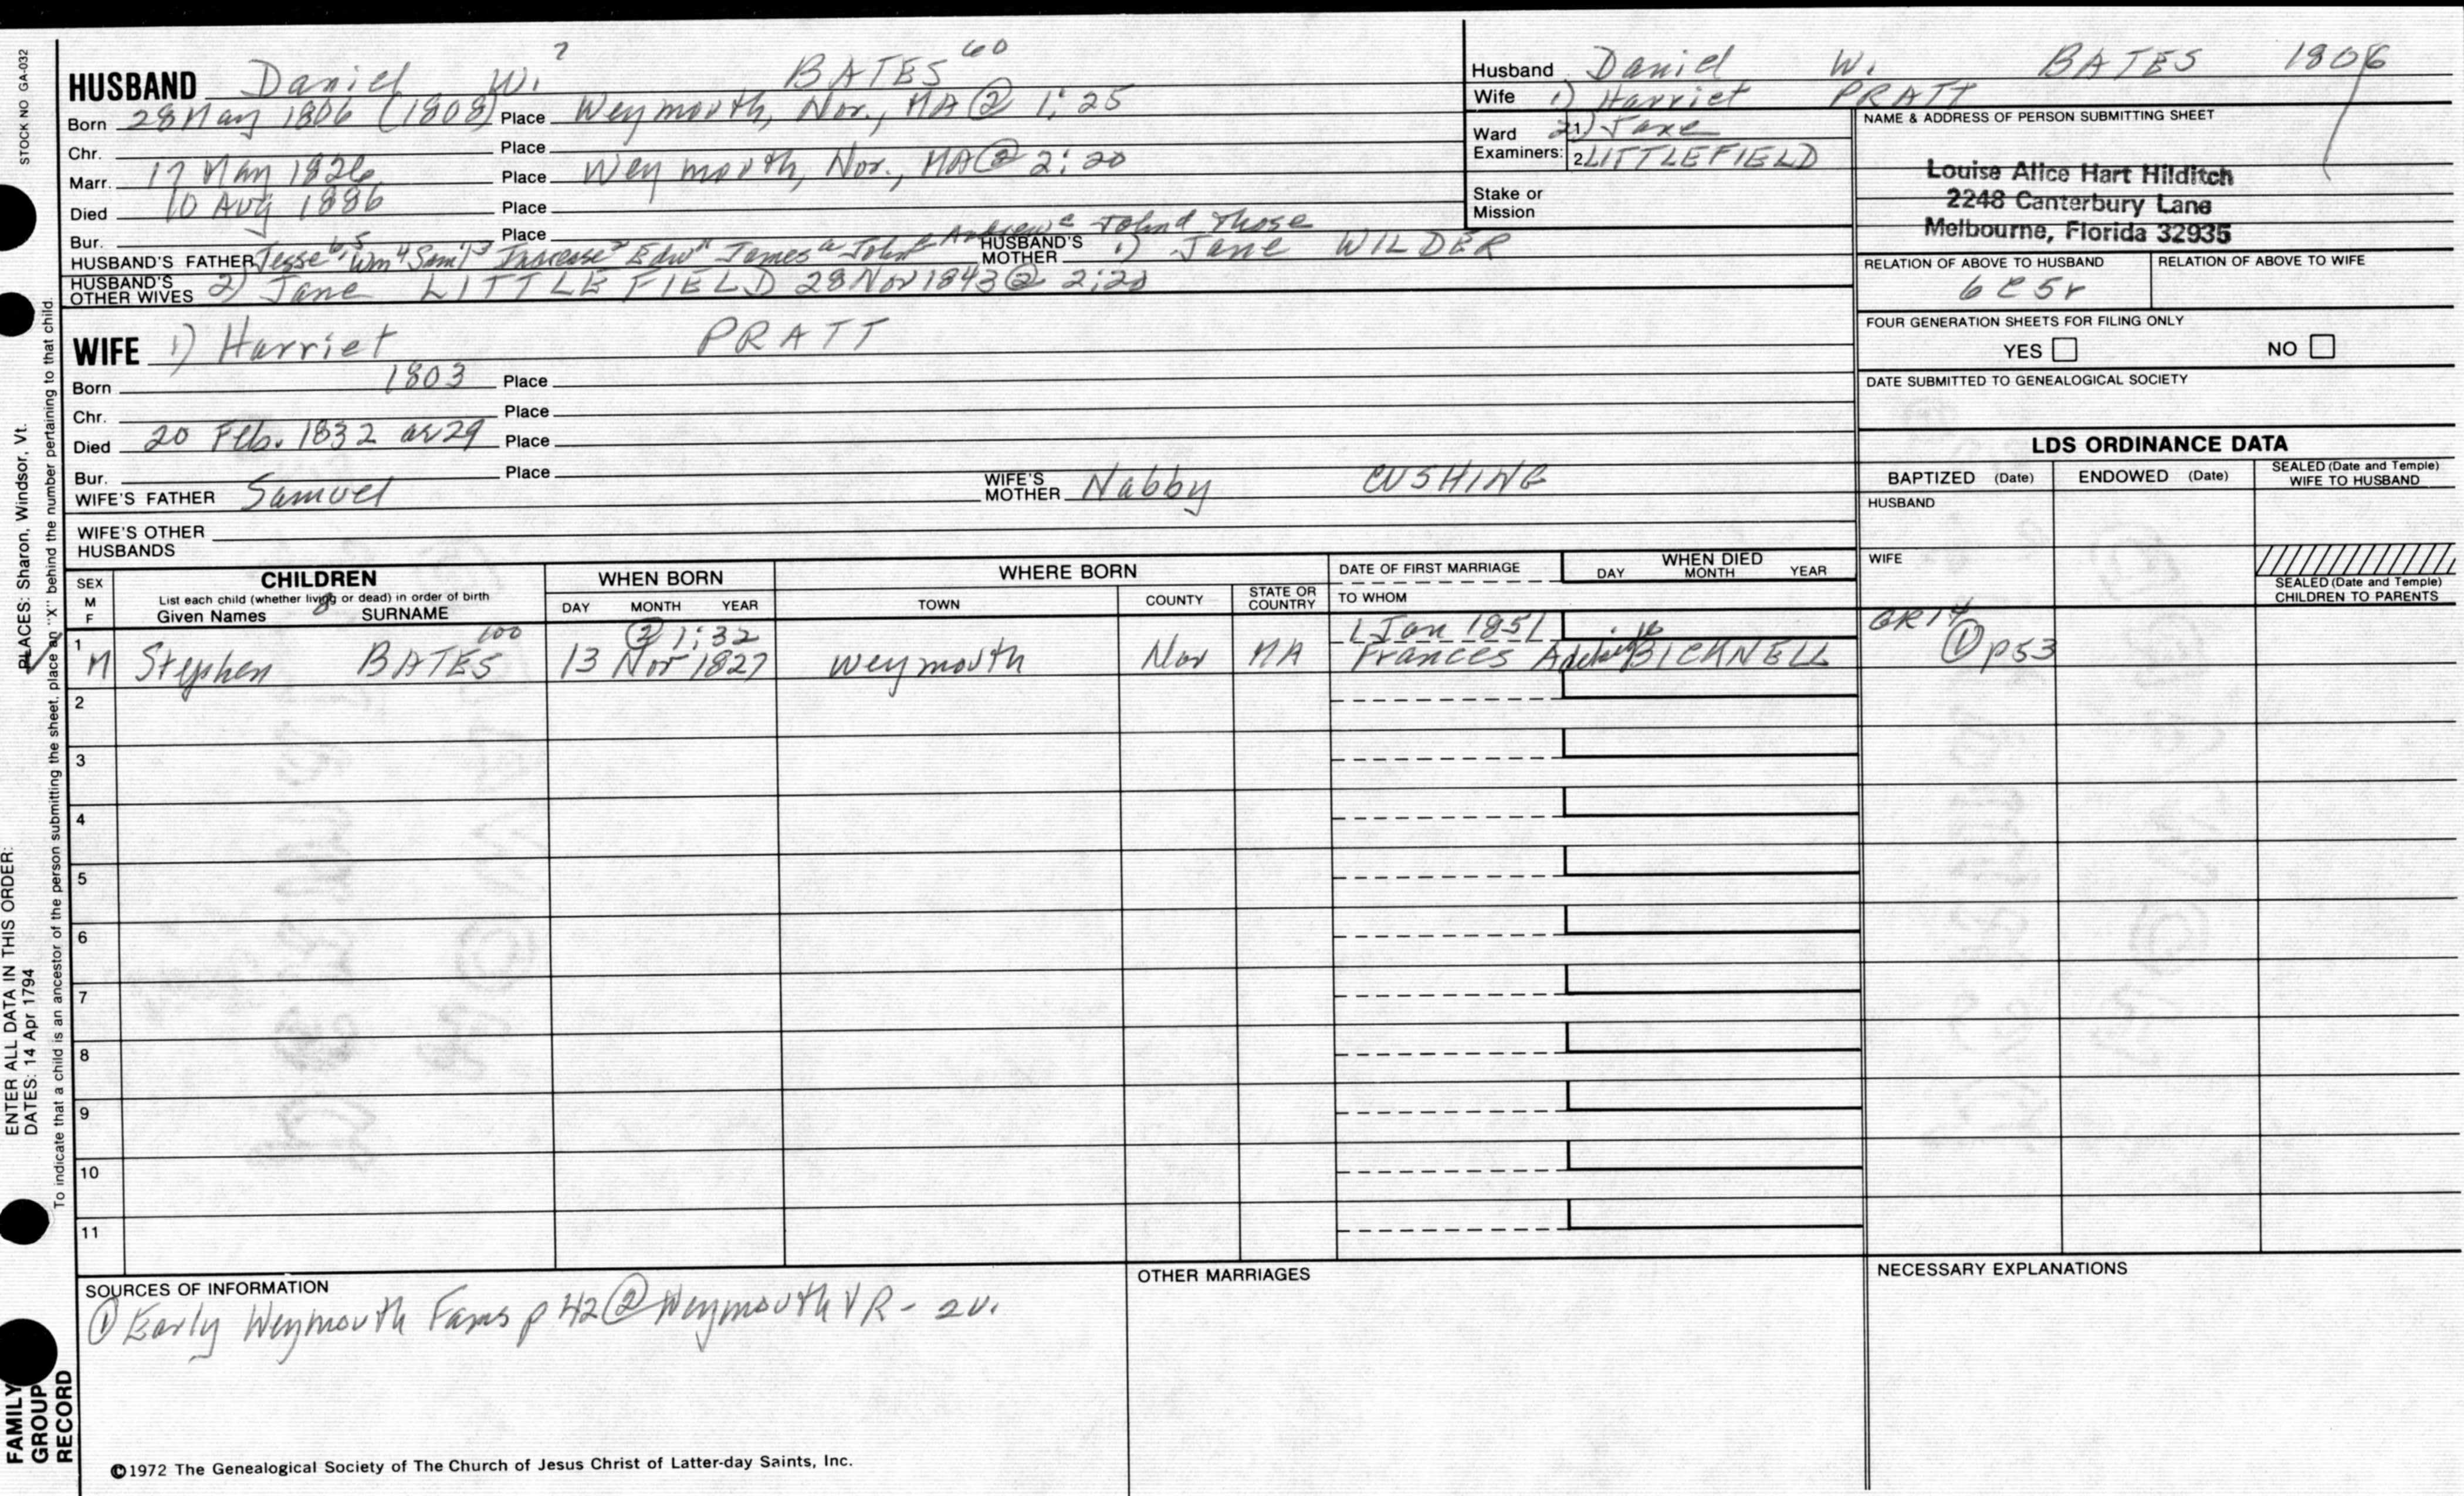 STOCK NO GA-032
HUSBAND Daniel W. 7 BATES 60
Born 28 May 1806 (1808) Place Weymouth, Nor., MA @ 1:25
Chr. Place
Marr. 17 May 1826 Place Weymouth, Nor., MA @ 2:20
Died 10 Aug 1886 Place
Bur. Place
HUSBAND'S FATHER Jesse 6, 5 Wm 4 Saml 3 Increase 2 Edw 1 James a John b Andrew c John d Thos e HUSBAND'S MOTHER 1) Jane WILDER
HUSBAND'S OTHER WIVES 2) Jane LITTLEFIELD 28 Nov 1843 @ 2:20
WIFE 1) Harriet PRATT
Born 1803 Place
Chr. Place
Died 20 Feb. 1832 ae 29 Place
Bur. Place
WIFE'S FATHER Samuel WIFE'S MOTHER Nabby CUSHING
WIFE'S OTHER HUSBANDS
Husband Daniel W. BATES 1806
Wife 1) Harriet PRATT
Ward Examiners: 1. 2) Jane
2. LITTLEFIELD
Stake or Mission
NAME & ADDRESS OF PERSON SUBMITTING SHEET
Louise Alice Hart Hilditch
2248 Canterbury Lane
Melbourne, Florida 32935
RELATION OF ABOVE TO HUSBAND RELATION OF ABOVE TO WIFE
6 C 5 r
FOUR GENERATION SHEETS FOR FILING ONLY
YES NO
DATE SUBMITTED TO GENEALOGICAL SOCIETY
LDS ORDINANCE DATA
BAPTIZED (Date) ENDOWED (Date) SEALED (Date and Temple) WIFE TO HUSBAND
HUSBAND
WIFE
SEALED (Date and Temple) CHILDREN TO PARENTS
SEX M F
CHILDREN
List each child (whether living or dead) in order of birth
Given Names 8 SURNAME
WHEN BORN
DAY MONTH YEAR
WHERE BORN
TOWN COUNTY STATE OR COUNTRY
DATE OF FIRST MARRIAGE
TO WHOM
WHEN DIED
DAY MONTH YEAR
1 100 @ 1:32 1 Jan 1851 GR14
M Stephen BATES 13 Nov 1827 Weymouth Nor MA Frances BICKNELL ① p53
2
3
4
5
6
7
8
9
10
11
SOURCES OF INFORMATION
① Early Weymouth Fams p 42 ② Weymouth VR - 2v.
OTHER MARRIAGES
NECESSARY EXPLANATIONS
©1972 The Genealogical Society of The Church of Jesus Christ of Latter-day Saints, Inc.
ENTER ALL DATA IN THIS ORDER:
DATES: 14 Apr 1794
PLACES: Sharon, Windsor, Vt.
To indicate that a child is an ancestor of the person submitting the sheet, place an "X" behind the number pertaining to that child.
FAMILY
GROUP
RECORD